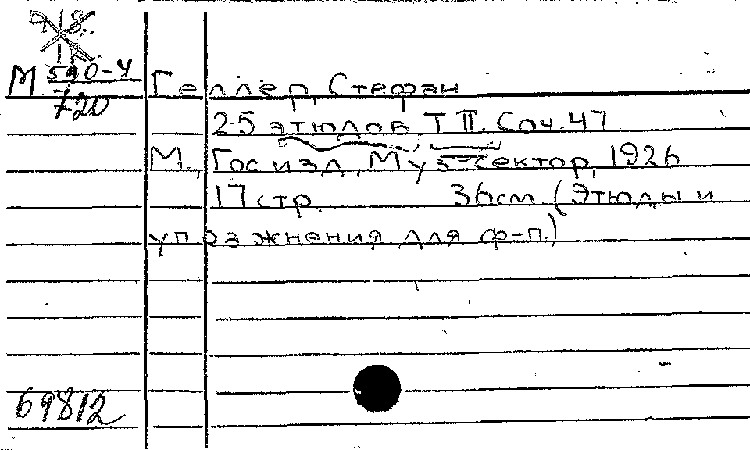 М 590-4
720
Геллер, Стефан
25 этюдов, Т II. Соч. 47
М., Госиздат, Муз-сектор, 1926
17 стр. 36см. (Этюды и
упражнения для ф-п.)
69812